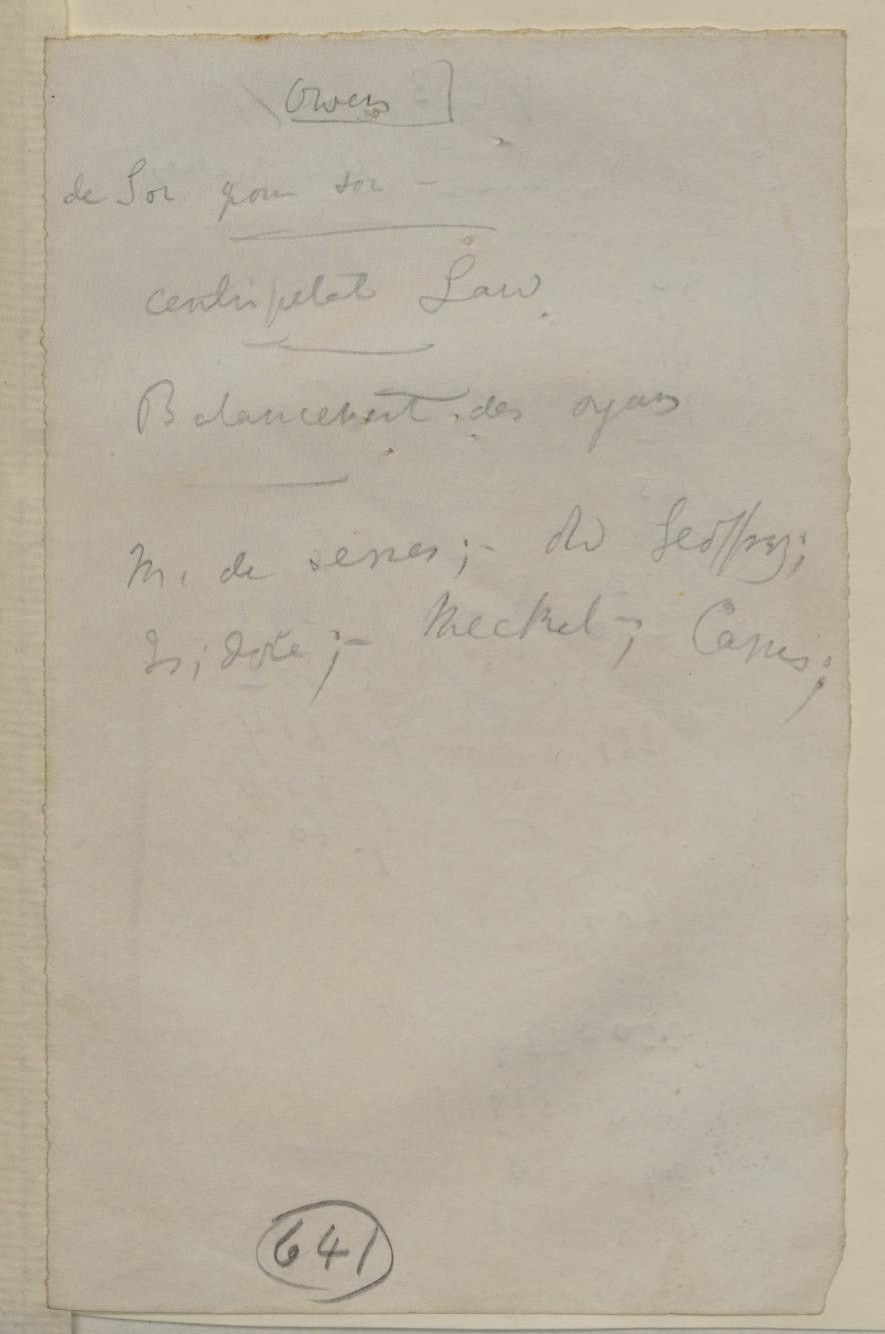 Owen
de Soi pour soi —
centripetal Law.
Balancement des organs
M. de Serres; — old Geoffroy;
Isidore; — Meckel —; Carus;
641